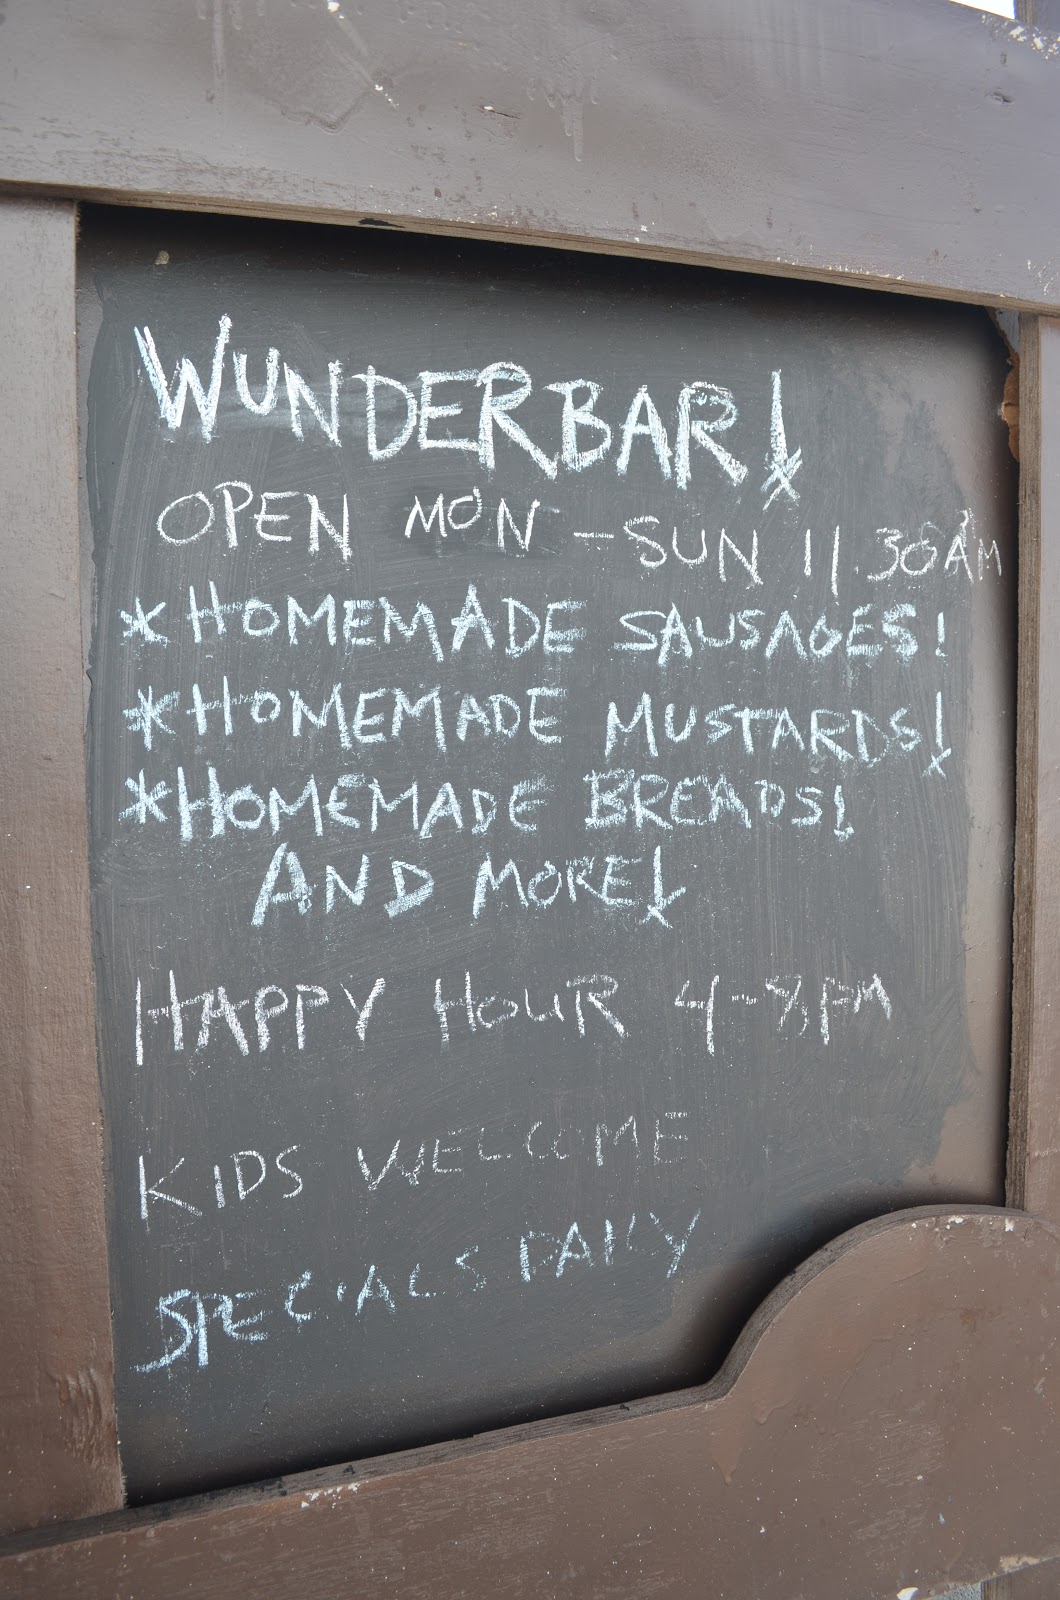 WUNDERBAR!
OPEN MON - SUN 11.30AM
*HOMEMADE SAUSAGES!
*HOMEMADE MUSTARDS!
*HOMEMADE BREADS!
AND MORE!
HAPPY HOUR 4-8pm
KIDS WELCOME
SPECIALS DAILY